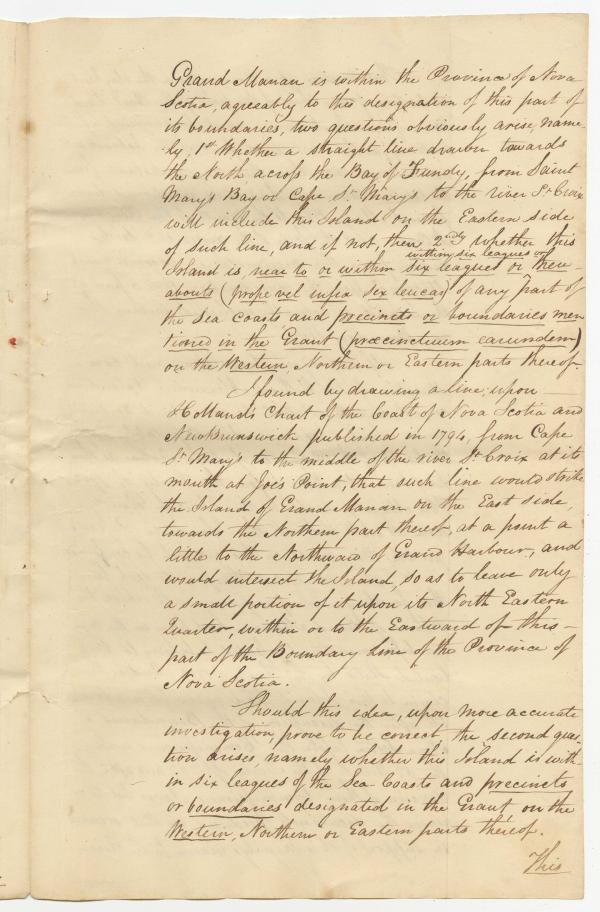 Grand Manan is within the Province of Nova
Scotia, agreeably to this designation of this part of
its boundaries, two questions obviously arise, name-
ly, 1st Whether a straight line drawn towards
the North across the Bay of Fundy, from Saint
Mary's Bay or Cape St Mary's to the river St Croix
will include this Island on the Eastern side
of such line, and if not, then 2ndly whether this
within six leagues or
Island is, near to or within six leagues or there-
abouts (prope vel infra sex leucas) of any part of
the Sea Coasts and precincts or boundaries men
tioned in the Grant (præcinctuum earundem)
on the Western, Northern or Eastern parts thereof.
I found by drawing a line, upon
Holland's Chart of the Coast of Nova Scotia and
New Brunswick published in 1794, from Cape
St Mary's to the middle of the river St Croix at its
mouth at Joe's Point, that such line would strike
the Island of Grand Manan on the East side,
towards the Northern part thereof, at a point a
little to the Northward of Grand Harbour, and
would intersect the Island, so as to leave only
a small portion of it upon its North Eastern
Quarter, within or to the Eastward of this
part of the Boundary Line of the Province of
Nova Scotia.
Should this idea, upon more accurate
investigation, prove to be correct, the second ques-
tion arises, namely whether this Island is with-
in six leagues of the Sea Coasts and precincts
or boundaries designated in the Grant on the
Western, Northern or Eastern parts thereof.
This